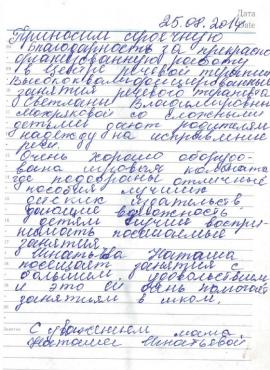 Дата
Date
25.08.2014
Приносим огромную
благодарность за прекрасно
организованную работу
в Центре речевой терапии
Высококвалифицированные
занятия речевого терапевта
Светланы Владимировны
со сложными
детьми дают родителям
надежду на исправление
речи.
Очень хорошо оборудо-
вана игровая комната
подобраны отличные
пособия лучших
издательств
дающие возможность
детям лучше воспри-
нимать посещаемые
занятия.
Игнатьева Наташа
посещает занятия с
большим удовольствием
и это ей очень помогает
занятиям в школе.
С уважением мама
Наташи Игнатьевой